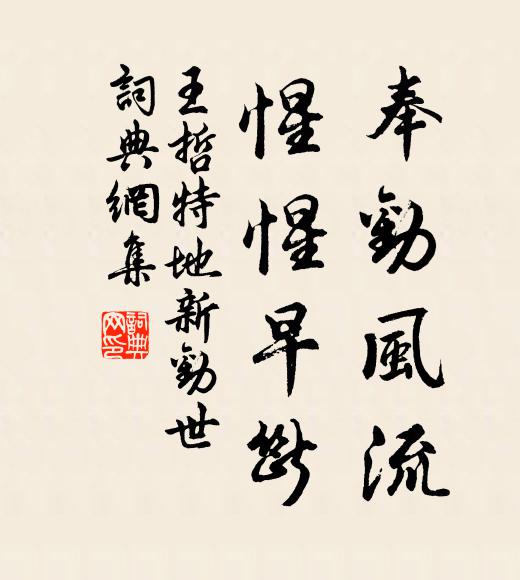 奉勸風流
惺惺早斷
王哲特地新勸世
詞典網集
詞典
网印